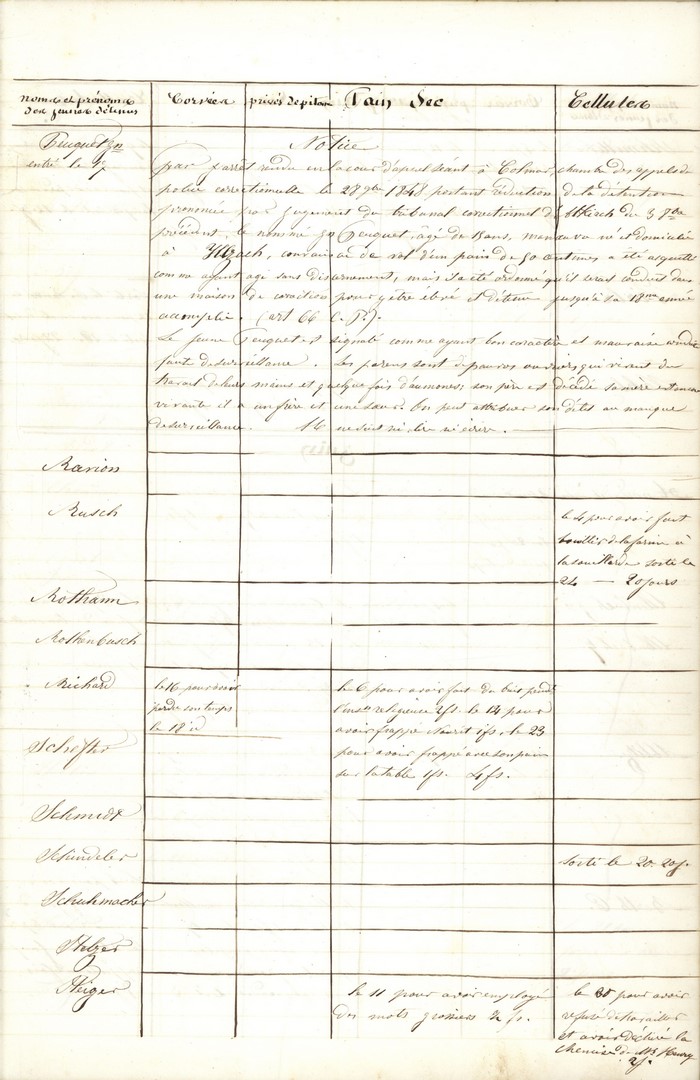 noms et prénoms des jeunes détenus
Corvées
privés de pitance
Pain Sec
Cellules
Feuguet
entré le 7
Notice
par l'arrêt rendu en la cour d'appel séant à Colmar, chambre des appels de
police correctionnelle le 28 9bre 1848 portant réduction de la détention
prononcée par jugement du tribunal correctionnel d'Altkirch du 3 8bre
précédent, le nommé Feuguet, âgé de 13 ans, né et domicilié
à convaincu de vol d'un pain de 50 centimes a été acquitté
comme ayant agi sans discernement, mais il a été ordonné qu'il serait conduit dans
une maison de correction pour y être élevé et détenu jusqu'à sa 18me année
accomplie. (art 66 C. P.).
Le jeune Feuguet est signalé comme ayant bon caractère et mauvaise conduite
faute de surveillance. Les parens sont de pauvres ouvriers qui vivent du
travail de leurs mains et quelquefois d'aumones son père est décédé sa mère est encore
vivante il a un frère et une sœur. On peut attribuer son délit au manque
de surveillance. Il ne sait ni lire ni écrire.
Rarion
Rusch
le 4 pour avoir fait
bouillir de la farine à
la sorti le
24 — 20 jours
Rothann
Rothenbusch
Richard
le 16 pour avoir
perdu son temps
le 18 id
le 6 pour avoir fait du bruit pendt
l'inson religieuse 2fs. le 14 pour
avoir frappé 1fs. le 23
pour avoir frappé avec son pain
sur la table 1fs. 4fs.
Schefter
Schmidt
Schindeler
sorti le 20. 20j.
Schuhmacher
Stelzer
Steiger
le 11 pour avoir employé
des mots grossiers 2 fs.
le 30 pour avoir
refusé de travailler
et avoir déchiré la
chemise de Mr Henry
2j.